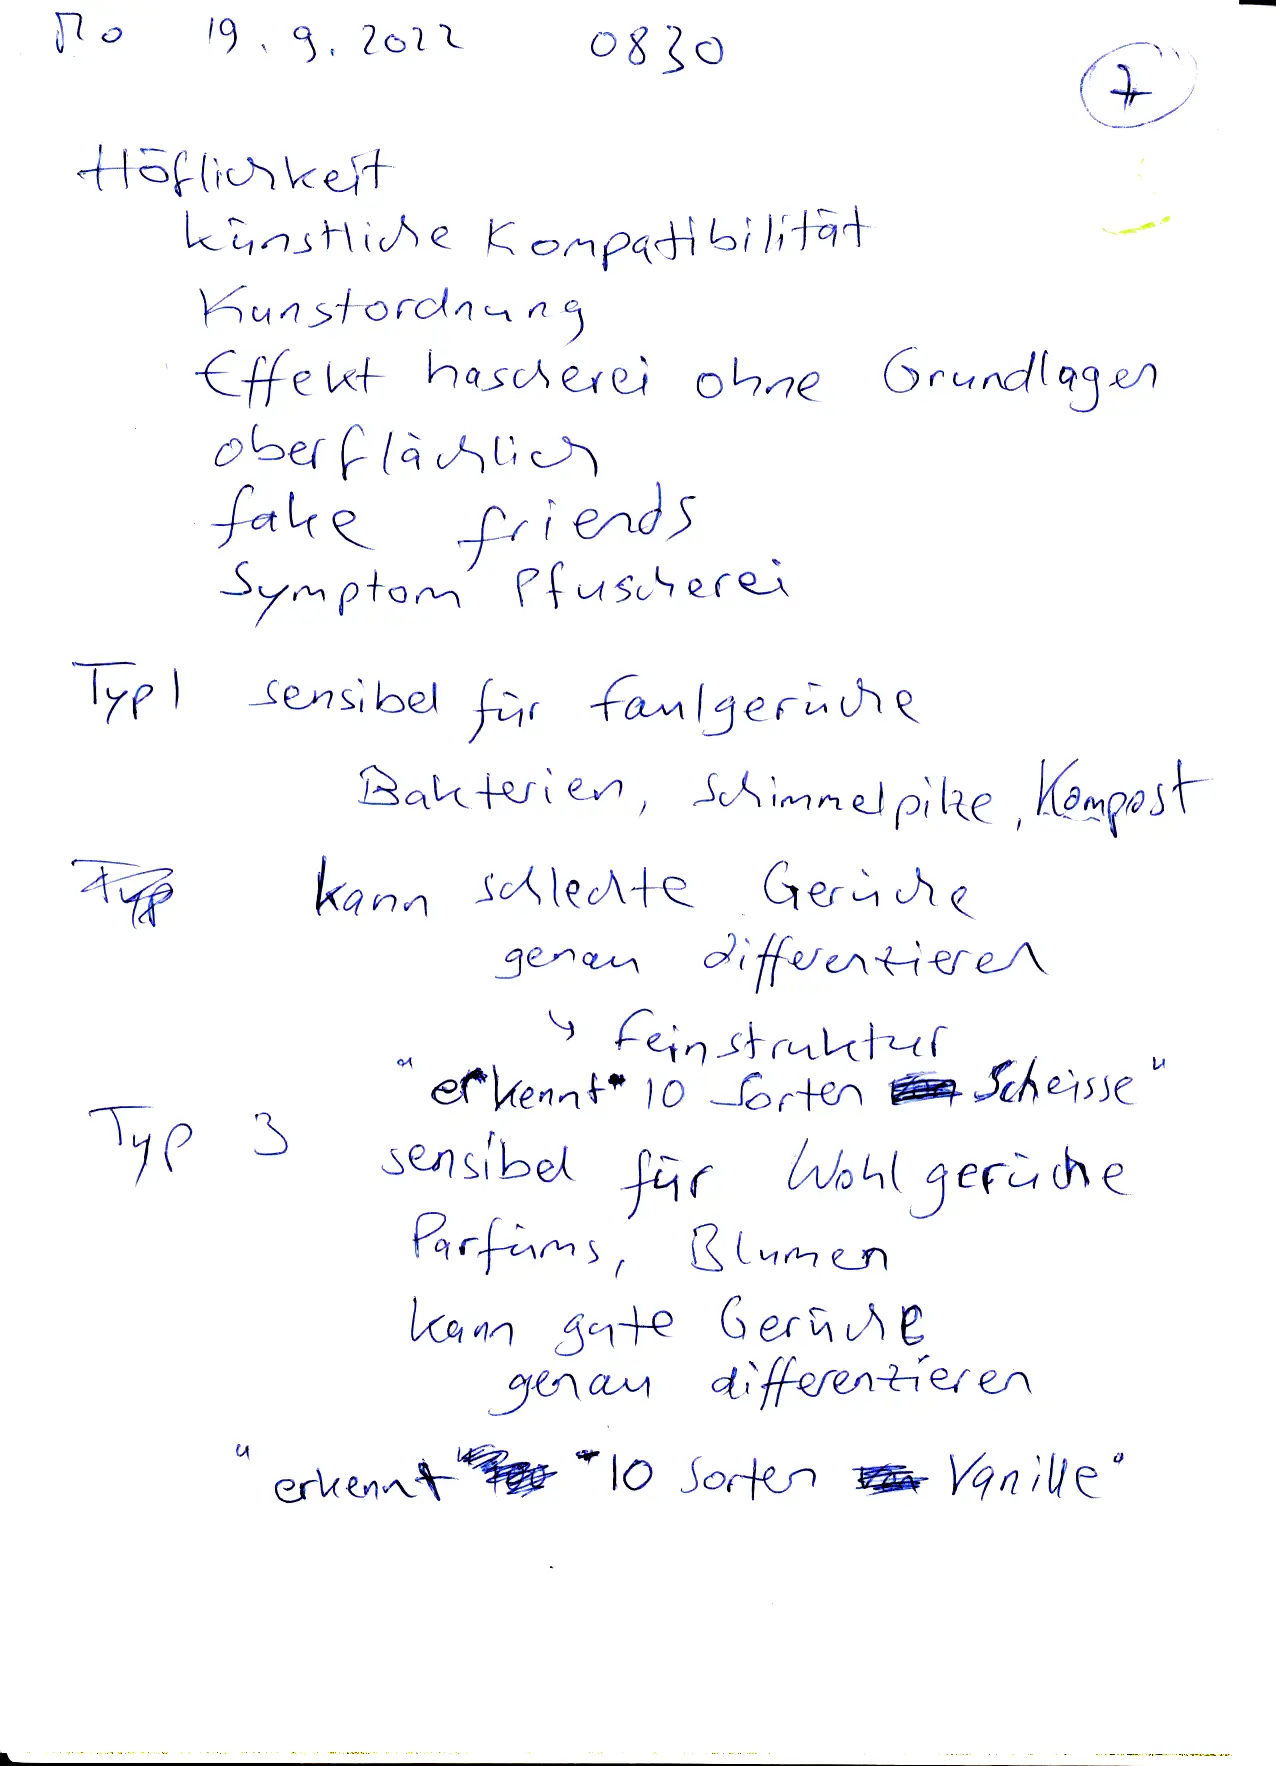 Mo 19.9.2022 0830
7
Höflichkeit
künstliche Kompatibilität
Kunstordnung
Effekthascherei ohne Grundlagen
oberflächlich
fake friends
Symptom Pfuscherei
Typ 1 sensibel für Faulgerüche
Bakterien, Schimmelpilze, Kompost
kann schlechte Gerüche
genau differenzieren
↳ Feinstruktur
"erkennt 10 Sorten Scheisse"
Typ 3
sensibel für Wohlgerüche
Parfüms, Blumen
kann gute Gerüche
genau differenzieren
"erkennt 10 Sorten Vanille"